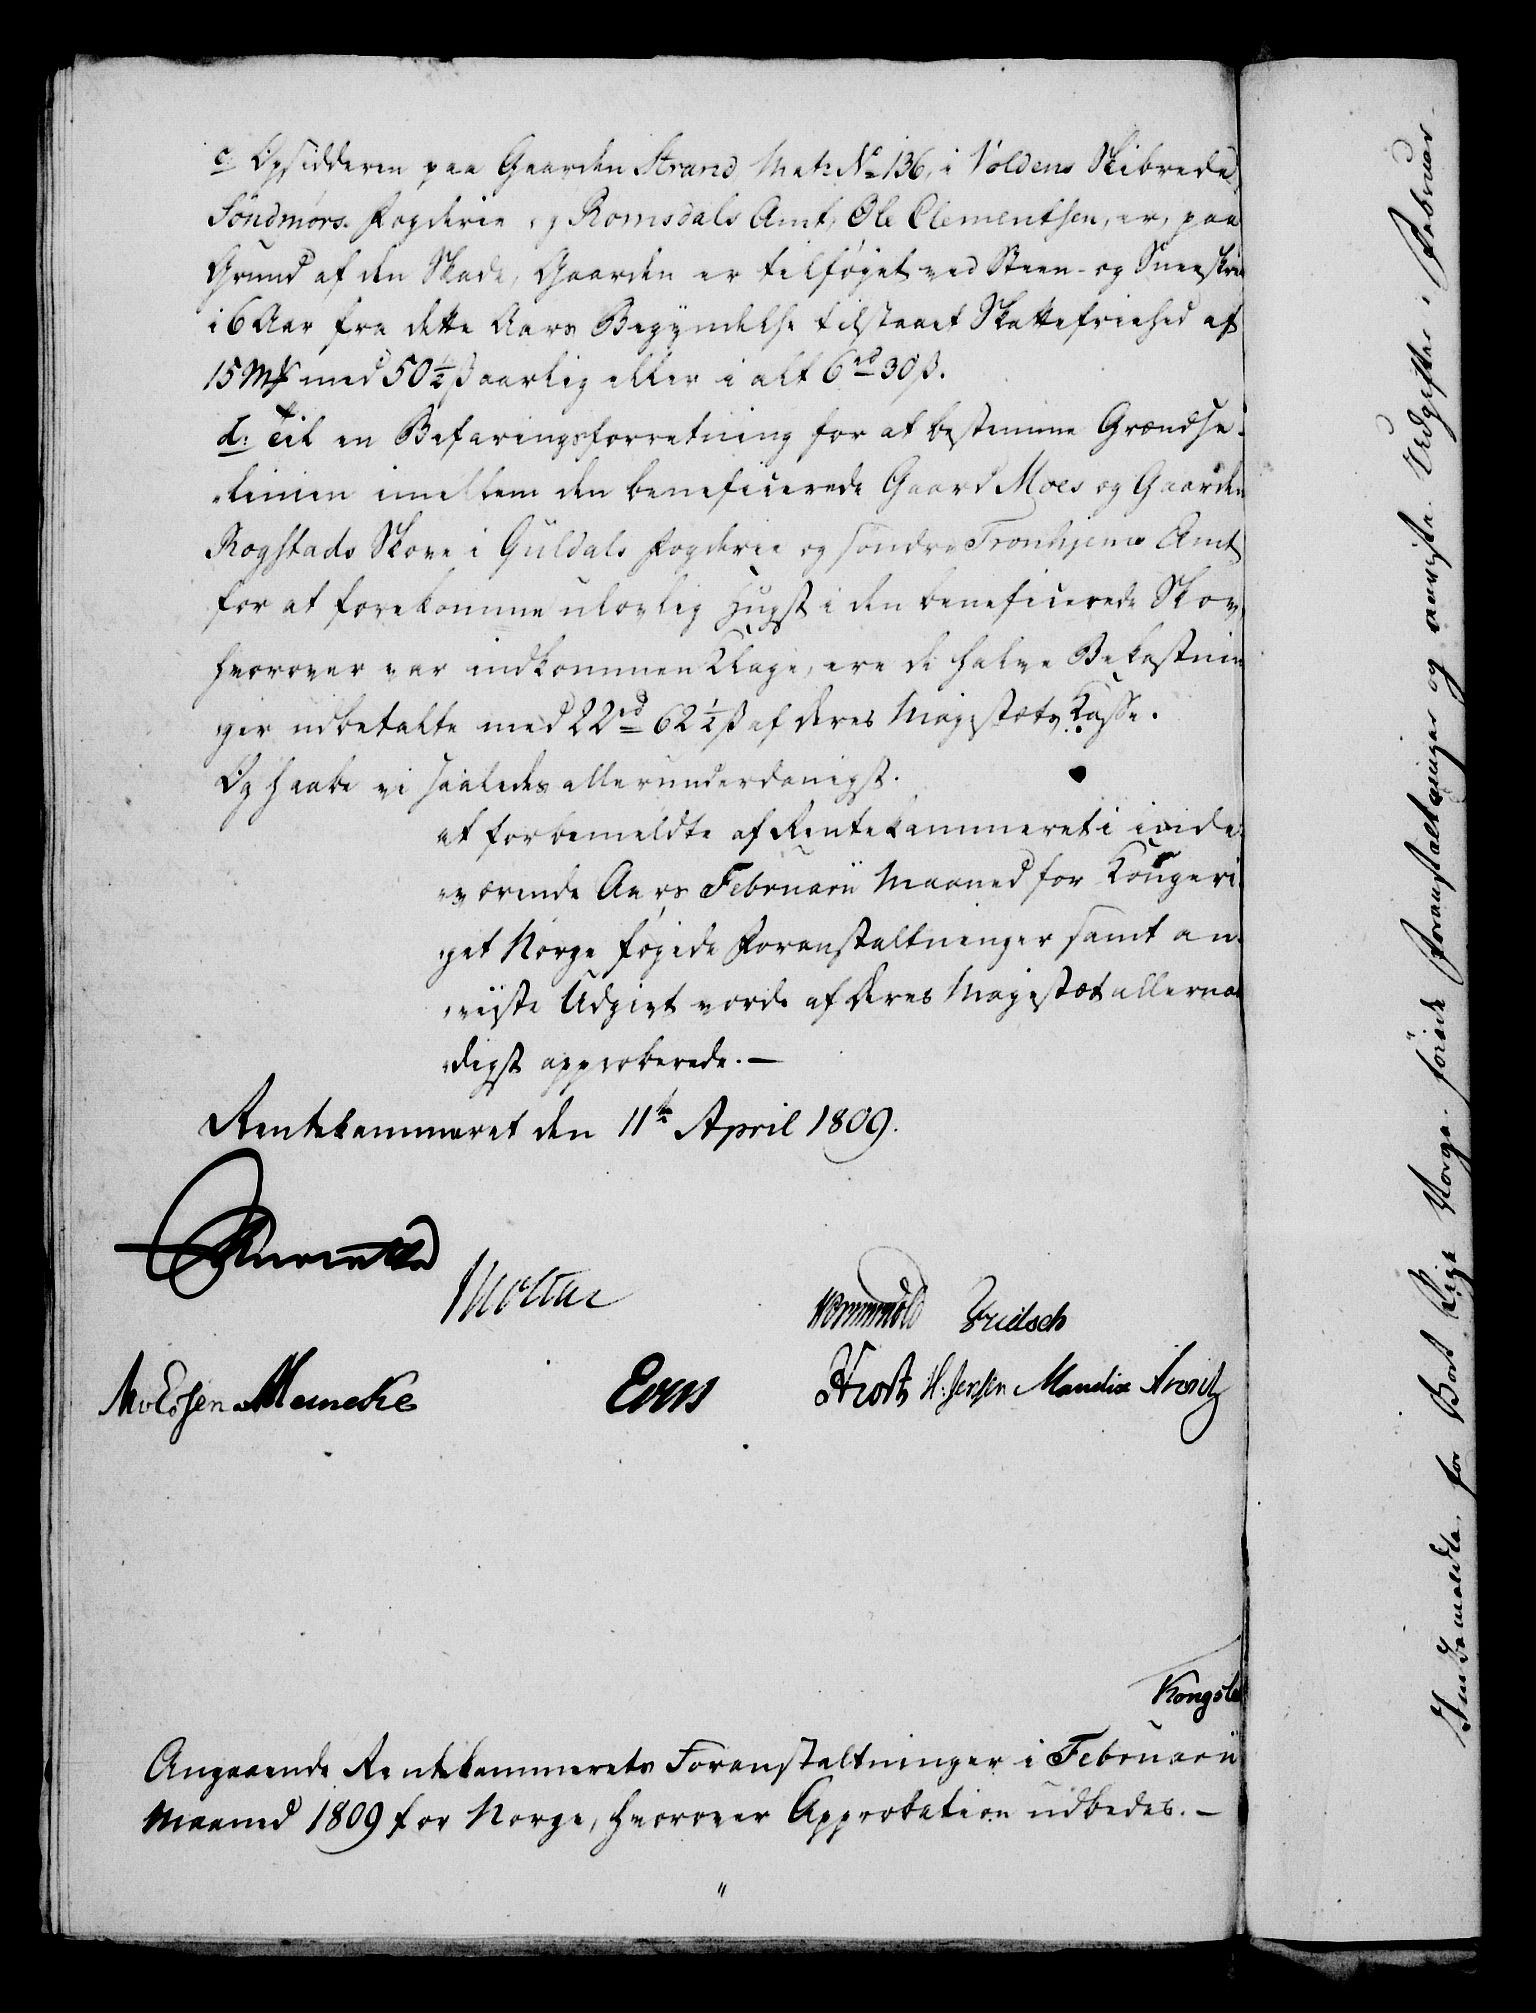 c. Opsidderen paa Gaarden Strand, Matr. No 136, i Voldens Skibrede,
Söndmörs Fogderie og Romsdals Amt, Ole Clementsen, er, paa
Grund af den Skade, Gaarden er tilföjet ved Steen- og Sneeskred
i 6 Aar fra dette Aars Begÿndelse tilstaaet Skattefriehed af
15 Mk med 50 1/2 ß aarlig eller i alt 6 rd 30 ß.
d. Til en Befaringsforretning for at bestemme Grændse-
linien imellem den beneficerede Gaard Moes og Gaarden
Rogstads Skove i Guldals Fogderie og söndre Tronhjems Amt
for at forekomme ulovlig Hugst i den beneficerede Skov,
hvorover var indkommen Klage, ere de halve Bekostnin
ger udbetalte med 22 rd 62 1/2 ß af Deres Majestæts Kasse.
Og haabe vi saaledes allerunderdanigst.
at forbemeldte af Rentekammeret i inde-
værende Aars Februarii Maaned for Kongeri-
get Norge föjede Foranstaltninger samt an-
viiste Udgivt vorde af Deres Majestæt allernaa
digst approberede. —
Rentekammeret den 11te April 1809.
Moltke
Wormskiold Fridsch
Meincke
Evers
H. Jensen Mandix
Kongsle
Angaaende Rentekammerets Foranstaltninger i Februarii
Maaned 1809 for Norge, hvorover Approbation udbedes. —
Anbemeldte, for Vort Rige Norge föiede Foranstaltninger og anviiste Udgifter i Februar